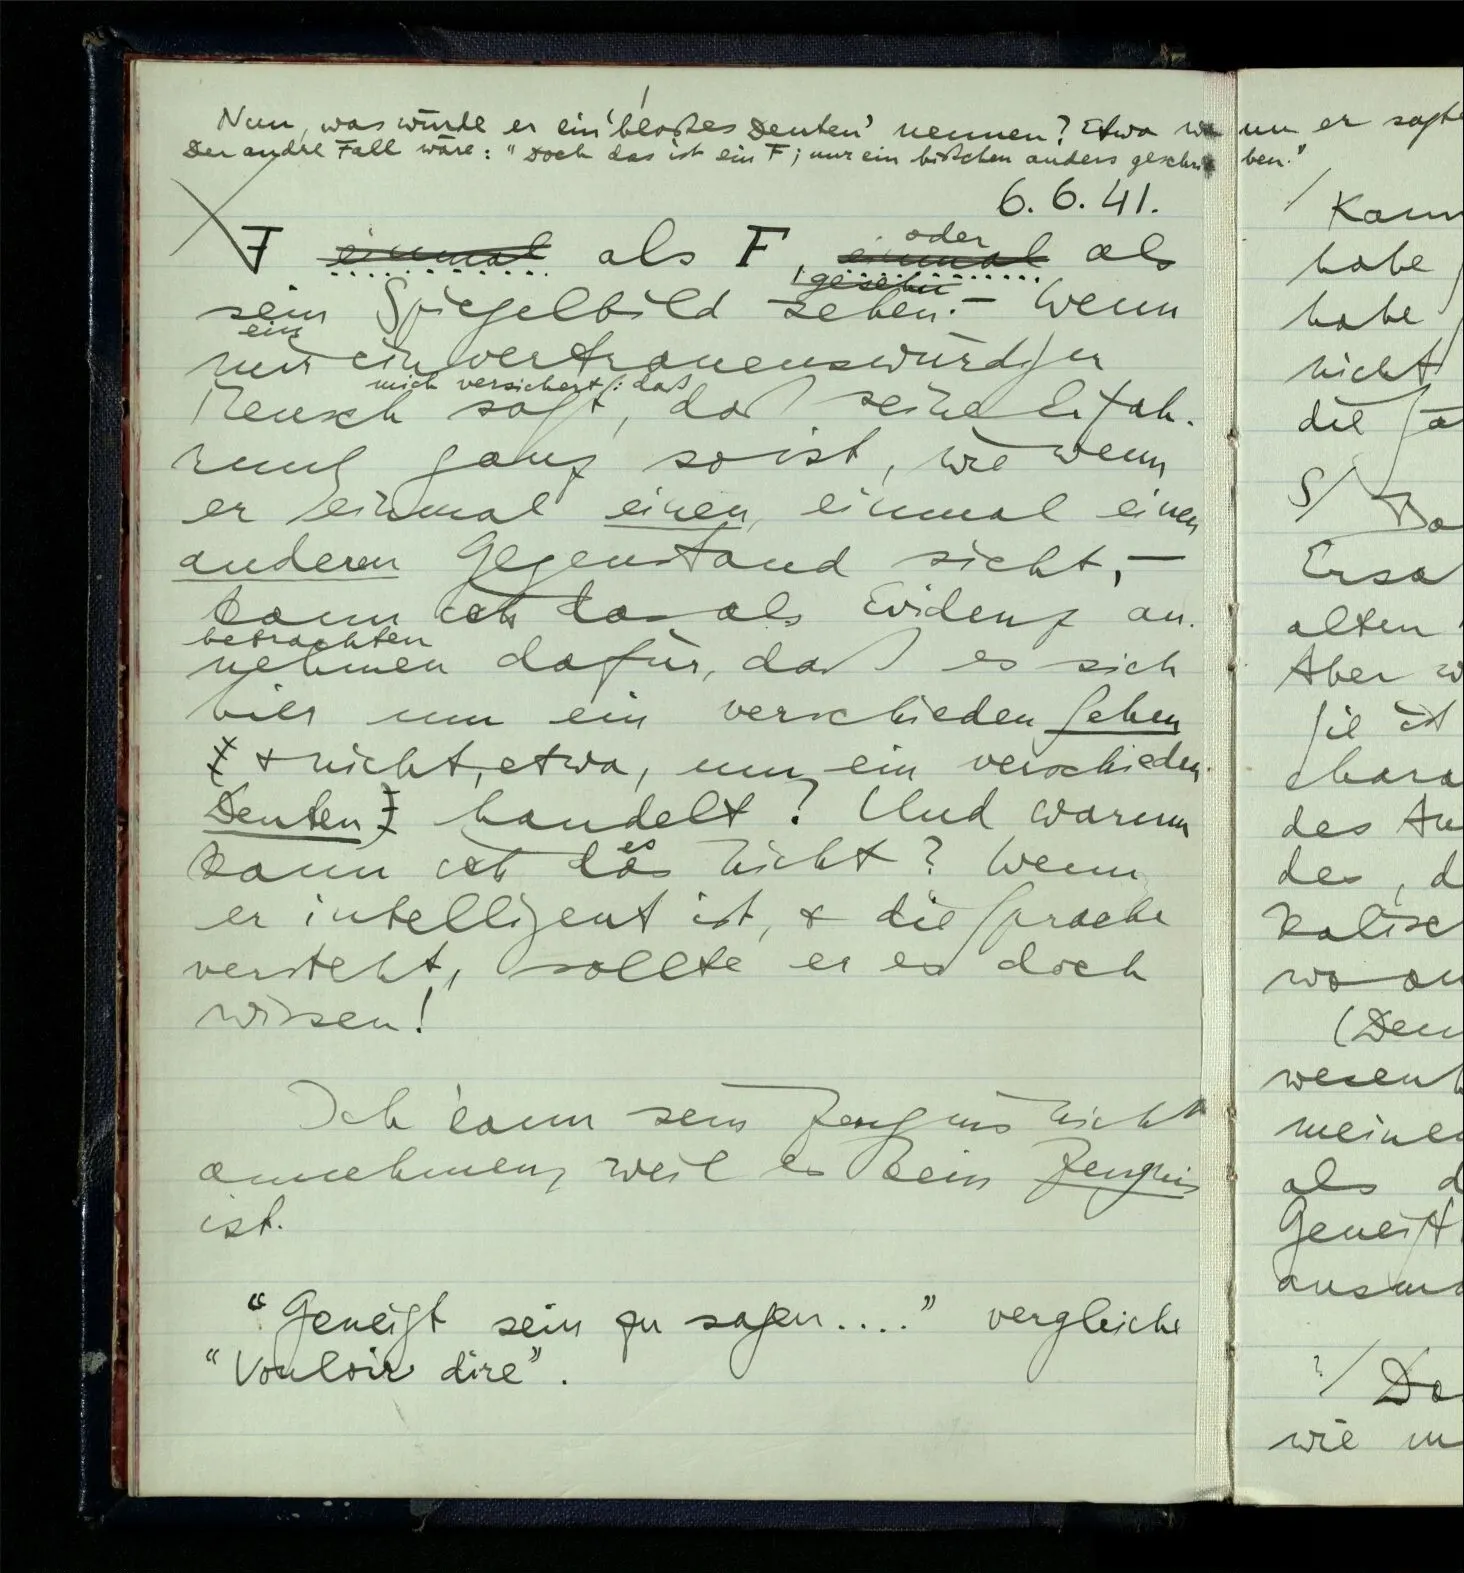 Nun, was würde er ein 'bloßes Deuten' nennen? Etwa wenn er sagte
Der andre Fall wäre: "Doch das ist ein F; nur ein bißchen anders geschrieben."
6. 6. 41.
F einmal als F, einmal oder als
gesehn
sein Spiegelbild sehen. – Wenn
ein
mir ein vertrauenswürdiger
mich versichert: daß
Mensch sagt, daß seine Erfah-
rung ganz so ist, wie wenn
er einmal einen, einmal einen
anderen Gegenstand sieht, –
kann ich das als Evidenz an-
betrachten
nehmen dafür, daß es sich
hier um ein verschieden Sehen
& nicht, etwa, um ein verschieden
Deuten handelt? Und warum
es
kann ich das nicht? Wenn
er intelligent ist, & die Sprache
versteht, sollte er es doch
wissen!
Ich kann sein Zeugnis nicht
annehmen, weil es kein Zeugnis
ist.
"Geneigt sein zu sagen...." vergleiche
"Vouloir dire".
/ Kann
habe
habe
nicht
die
S/
Ersa
alten
Aber w
sie ist
chara
des Au
des, d
kalisc
wo
(Den
wesent
meine
als d
Geneigt
ausma
?/ Da
wie